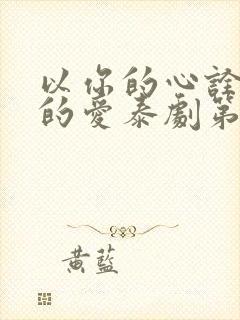 以你的心詮
的愛泰劇第
黃藍